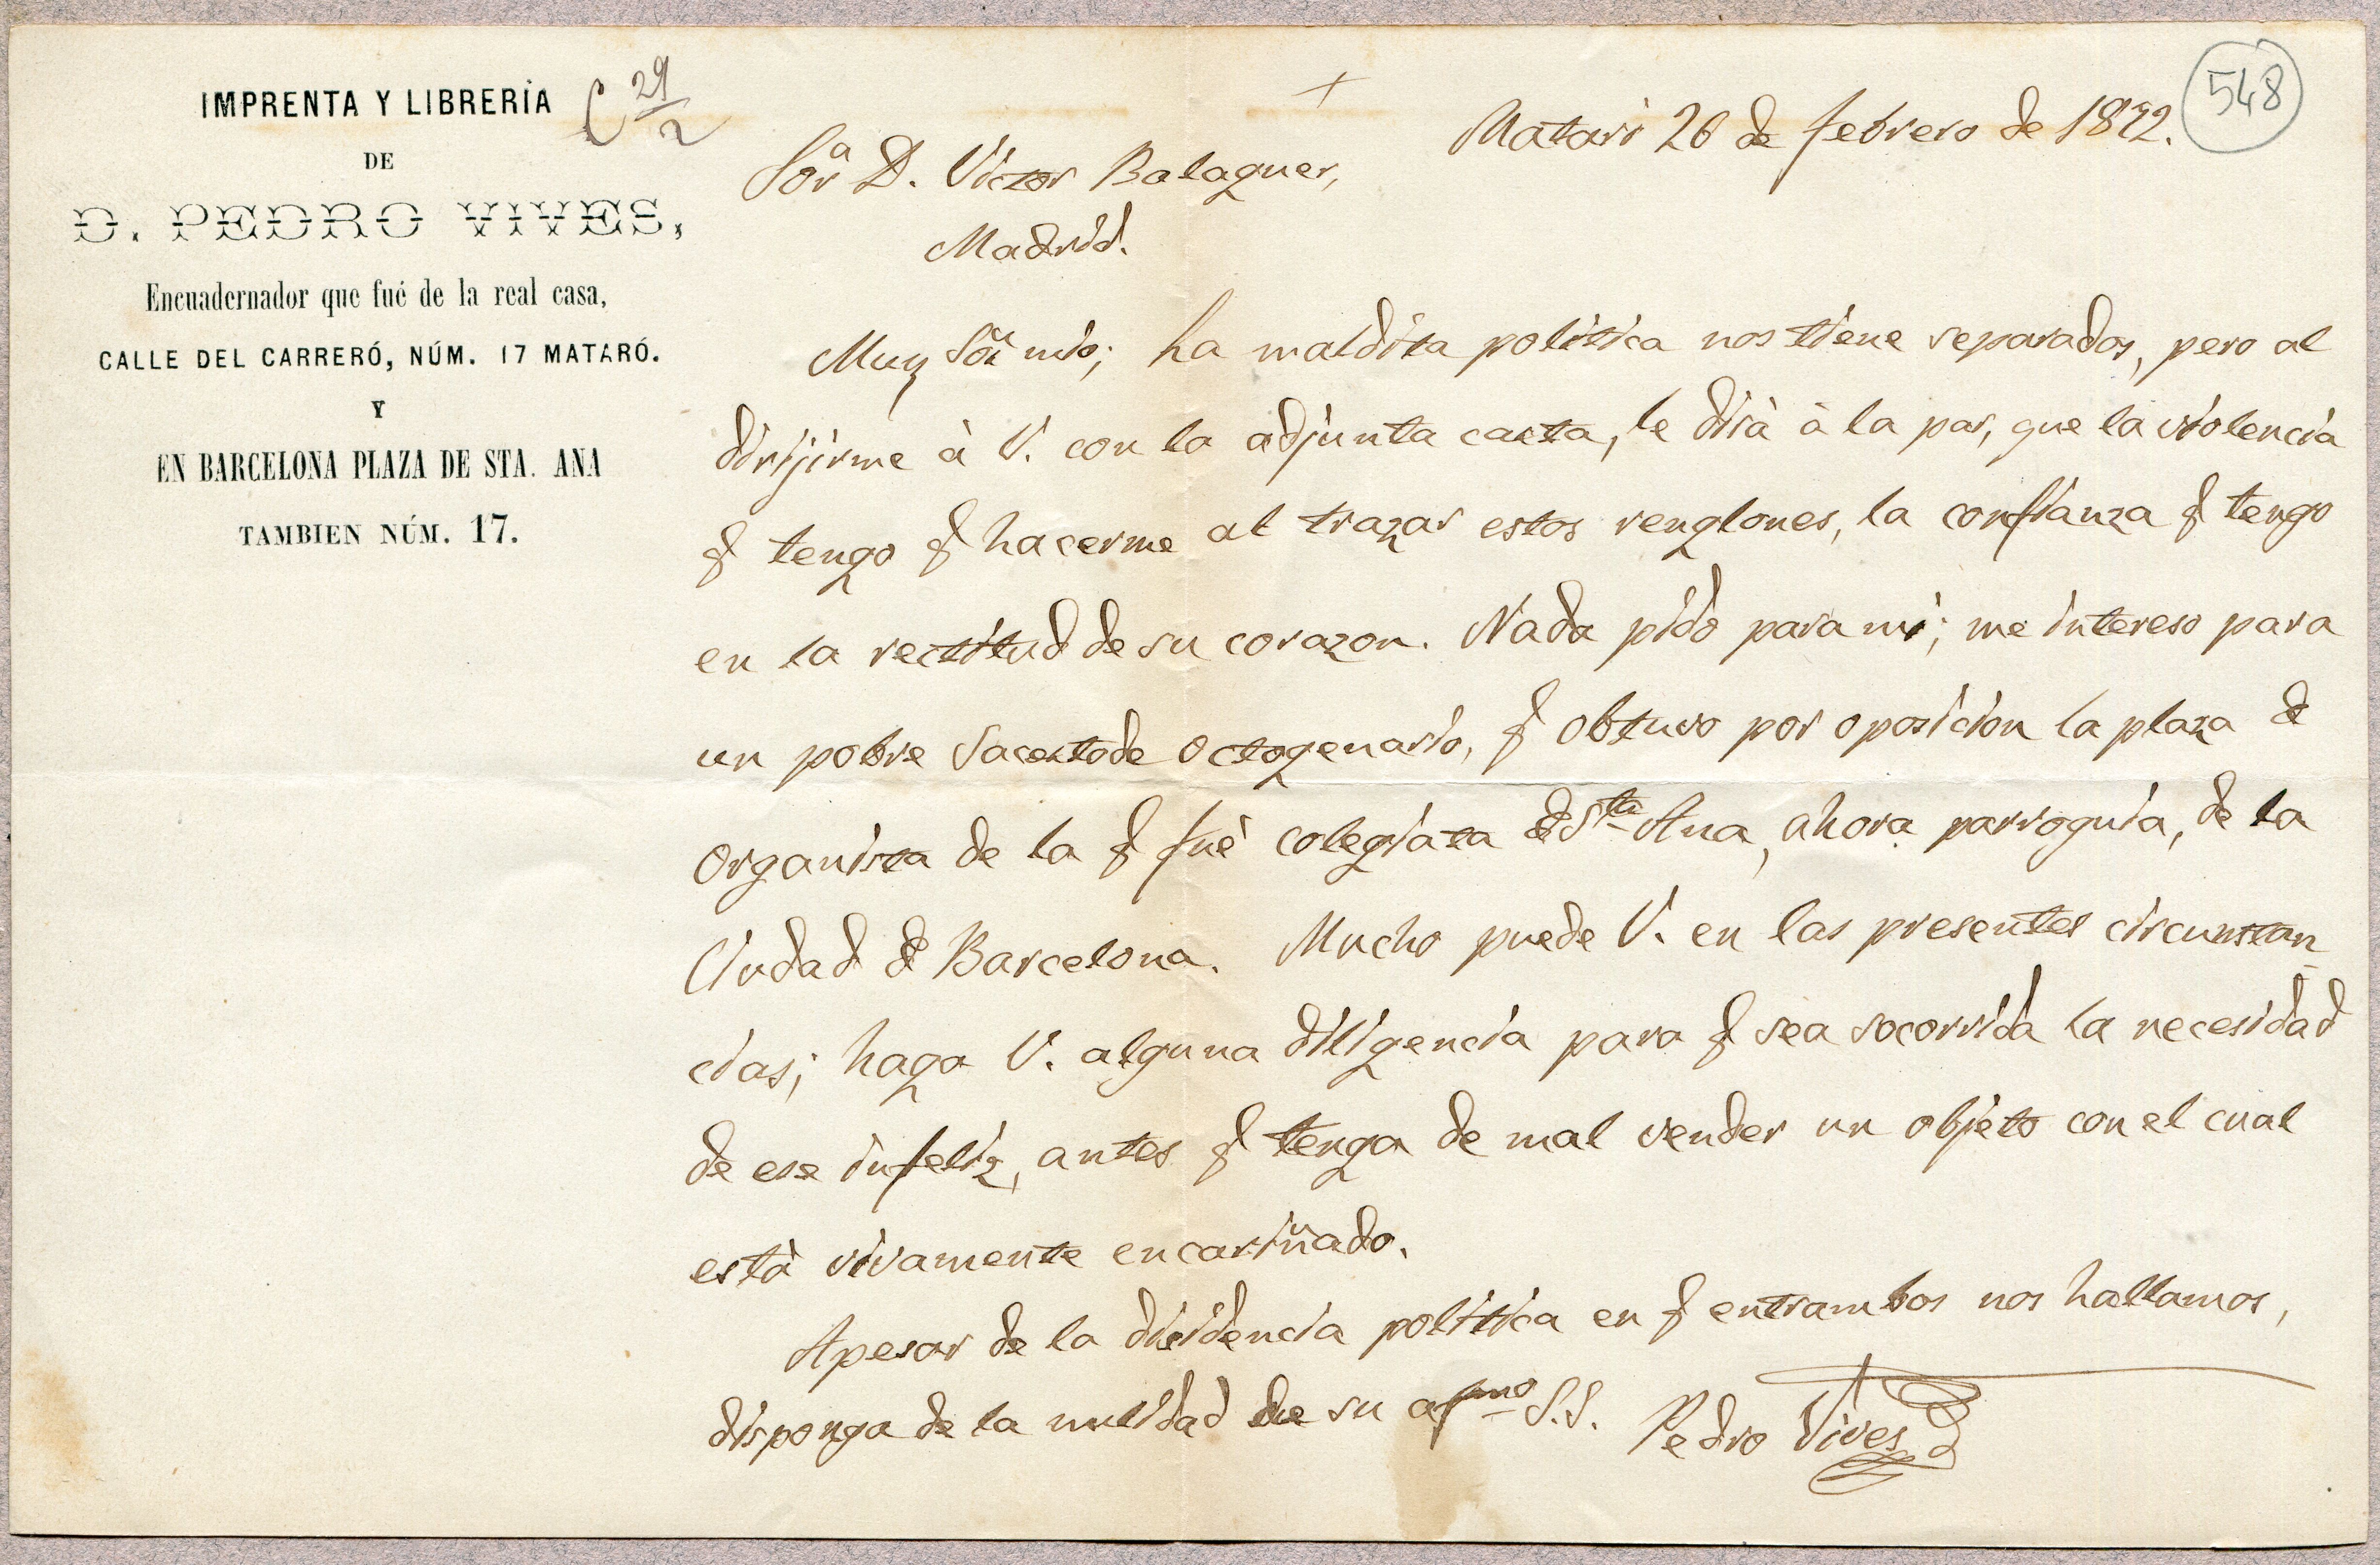 IMPRENTA Y LIBRERÍA
DE
D. PEDRO VIVES,
Encuadernador que fué de la real casa,
CALLE DEL CARRERÓ, NÚM. 17 MATARÓ.
Y
EN BARCELONA PLAZA DE STA. ANA
TAMBIEN NÚM. 17.
C 29/2
548
+
Mataró 26 de febrero de 1872.
Sor D. Victor Balaguer,
Madrid.
Muy Sor mio; La maldita politica nos tiene separados, pero al
dirijirme à V. con la adjunta carta, le dirà à la par, que la violencia
q tengo q hacerme al trazar estos renglones, la confianza q tengo
en la rectitud de su corazon. Nada pido para mi; me intereso para
un pobre Sacertode octogenario, q obtuvo por oposicion la plaza de
organista de la q fuè colegiata de Sta Ana, ahora parroquia, de la
Ciudad de Barcelona. Mucho puede V. en las presentes circunstan
cias; haga V. alguna diligencia para q sea socorrida la necesidad
de ese infeliz, antes q tenga de mal vender un objeto con el cual
està vivamente encariñado.
Apesar de la disidencia politica en q entrambos nos hallamos,
disponga de la nulidad de su afmo S.S. Pedro Vives